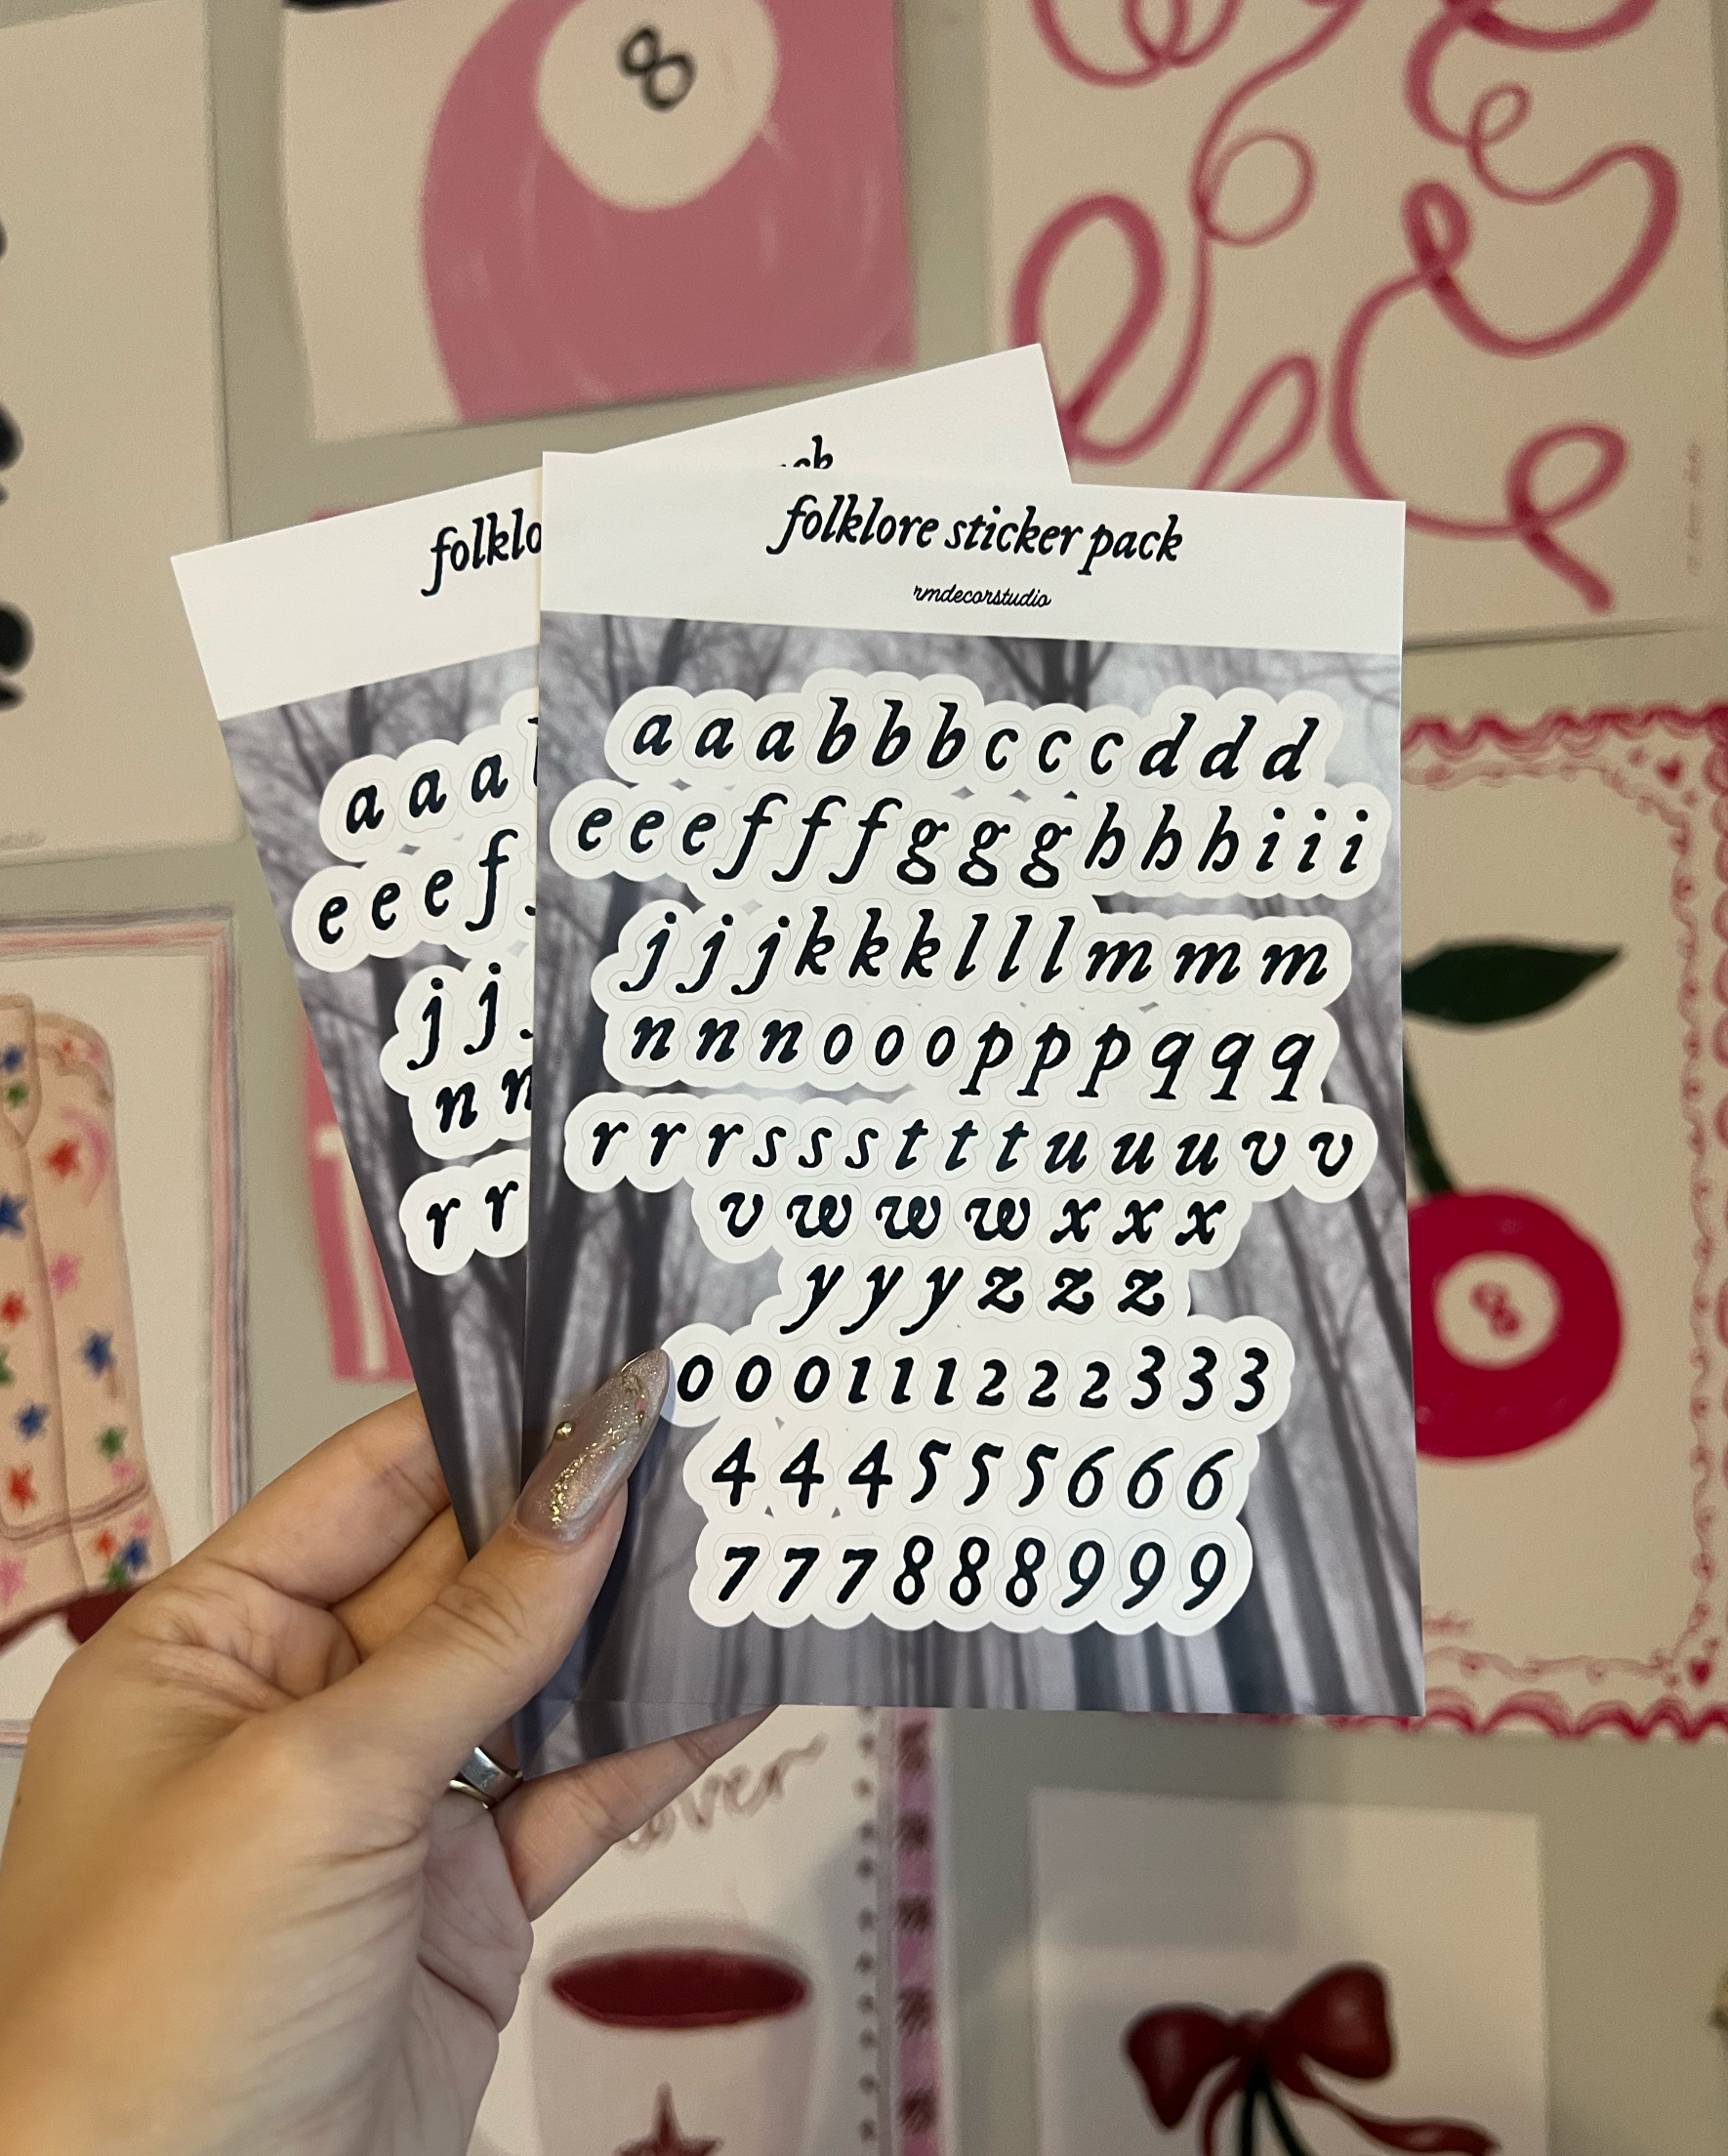 8
ck
folklo
folklore sticker pack
rmdecorstudio
a a a b b b c c c d d d
e e e f f f g g g h h h i i i
j j j k k k l l l m m m
n n n o o o p p p q q q
r r r s s s t t t u u u v v
v w w w x x x
y y y z z z
0 0 0 1 1 1 2 2 2 3 3 3
4 4 4 5 5 5 6 6 6
7 7 7 8 8 8 9 9 9
a a a
e e e f
j j
n n
r r
8